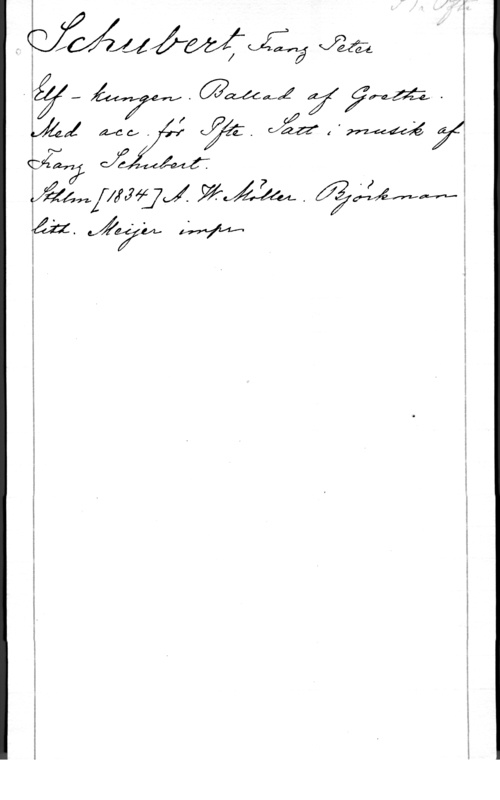 Schubert, Franz Peter
Elf-kungen. Ballad af Goethe.
Med acc. för Pfte. Satt i musik af
Franz Schubert.
Sthlm [1834] A. W. Möller. Björkman
lith. Meijer impr